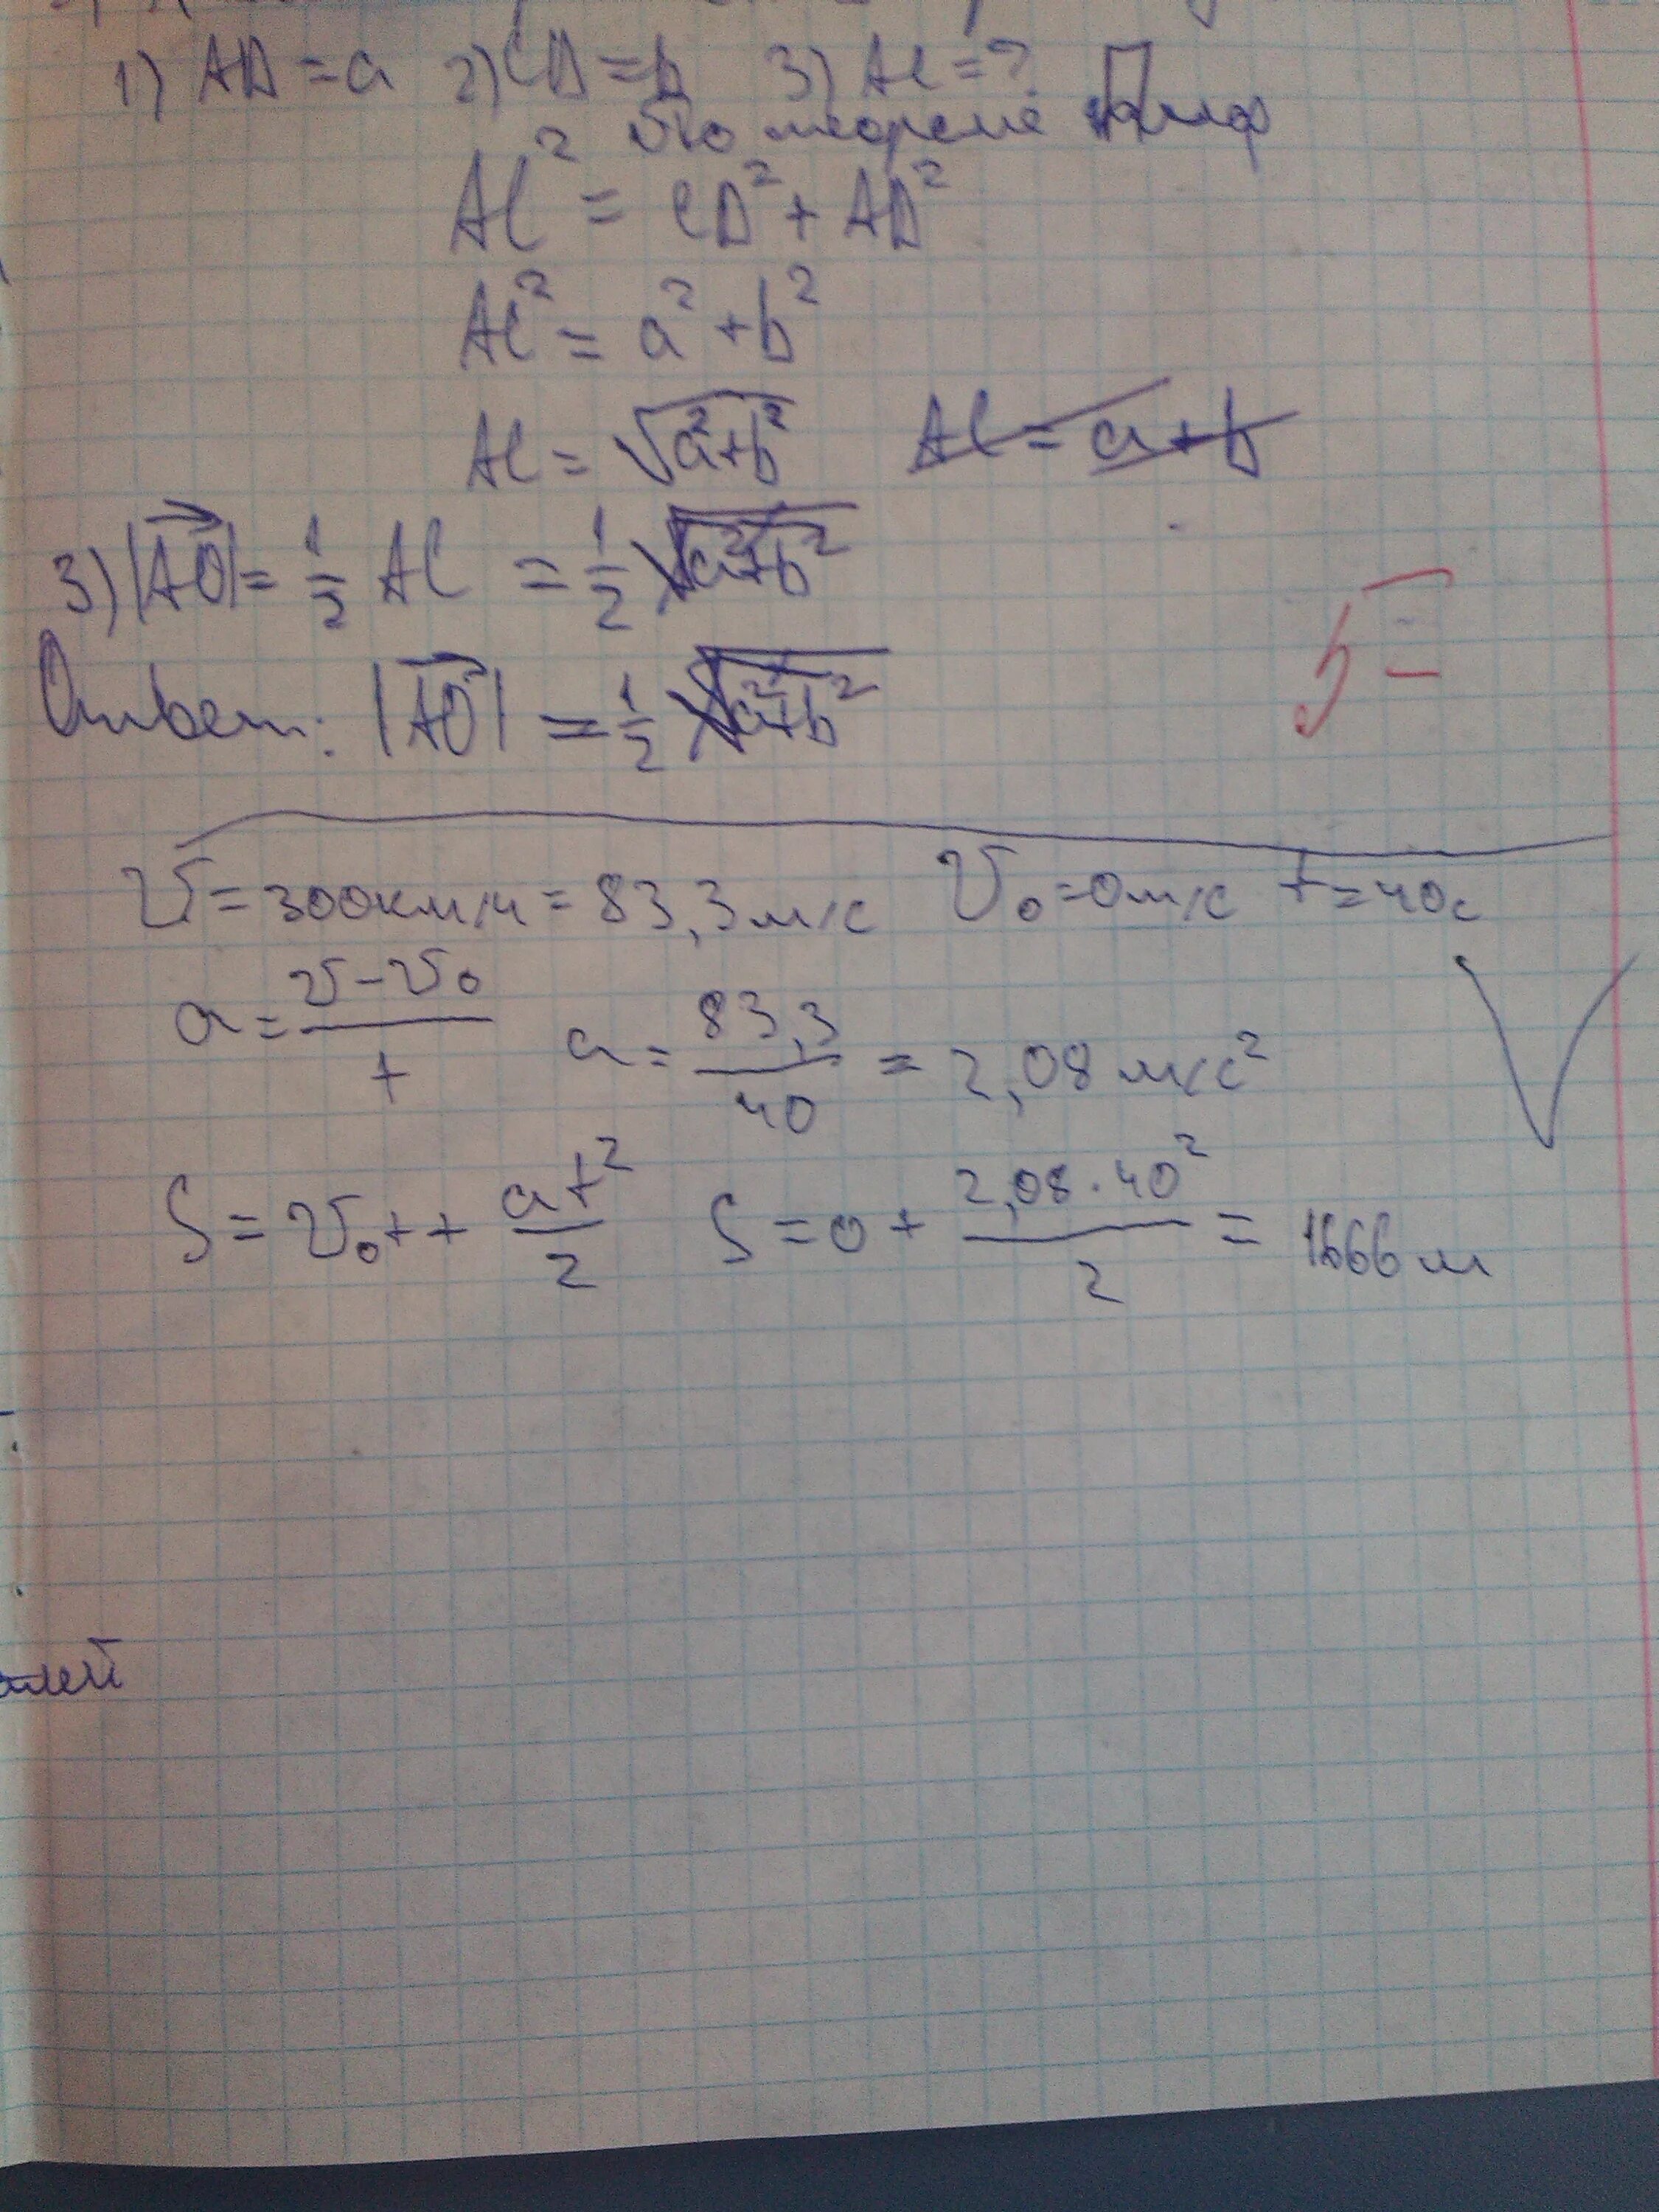 1) AD = a 2) CD = b 3) AC = ?
По теореме Пиф
AC² = CD² + AD²
AC² = a² + b²
AC = √a²+b² AC = a + b
3) |AO| = 1/2 AC = 1/2 √a²+b²
5=
Ответ: |AO| = 1/2 √a²+b²
υ = 300км/ч = 83,3 м/с υ₀ = 0м/с t = 40с
a = υ - υ₀ / t a = 83,3 / 40 = 2,08 м/с²
S = υ₀t + at² / 2 S = 0 + 2,08 · 40² / 2 = 1666 м